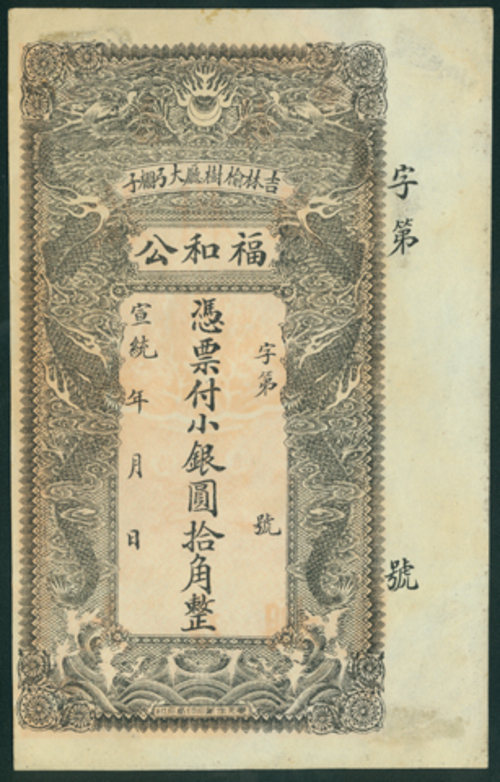 吉林榆樹廠大弓棚子
福和公
字第 號
憑票付小銀圓拾角整
宣統 年 月 日
字第 號